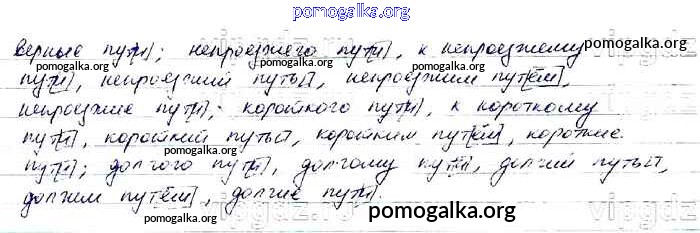 pomogalka.org
верные пут[и]; непроезжего пут[и], к непроезжему
pomogalka.org pomogalka.org
пут[и], непроезжий путь[], непроезжим пут[ём],
непроезжие пут[и]; короткого пут[и], к короткому
пут[и], короткий путь[], коротким пут[ём], короткие
pomogalka.org pomogalka.org
пут[и]; долгого пут[и], долгому пут[и], долгий путь[],
долгим пут[ём], долгие пут[и].
pomogalka.org vipgdz.ru pomogalka.org